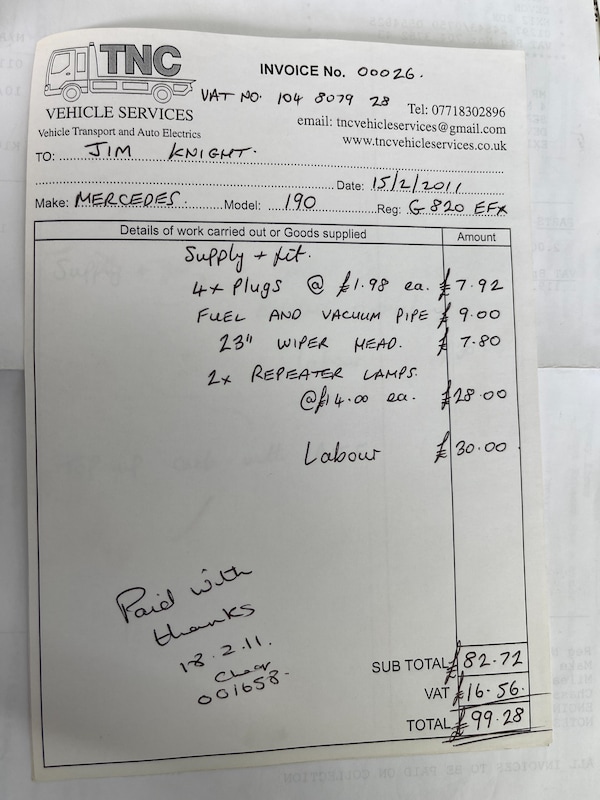 TNC
VEHICLE SERVICES
Vehicle Transport and Auto Electrics
INVOICE No. 00026.
VAT NO. 104 8079 28
Tel: 07718302896
email: tncvehicleservices@gmail.com
www.tncvehicleservices.co.uk
TO: JIM KNIGHT.
Date: 15/2/2011
Make: MERCEDES. Model: 190 Reg: G 820 EFX
Details of work carried out or Goods supplied Amount
Supply + fit.
4x Plugs @ £1.98 ea. £7.92
FUEL AND VACUUM PIPE £9.00
23" WIPER HEAD. £7.80
2x REPEATER LAMPS.
@£14.00 ea. £28.00
Labour £30.00
Paid with
thanks
18.2.11.
001658.
SUB TOTAL £82.72
VAT £16.56.
TOTAL £99.28
ALL INVOICES TO BE PAID ON COLLECTION